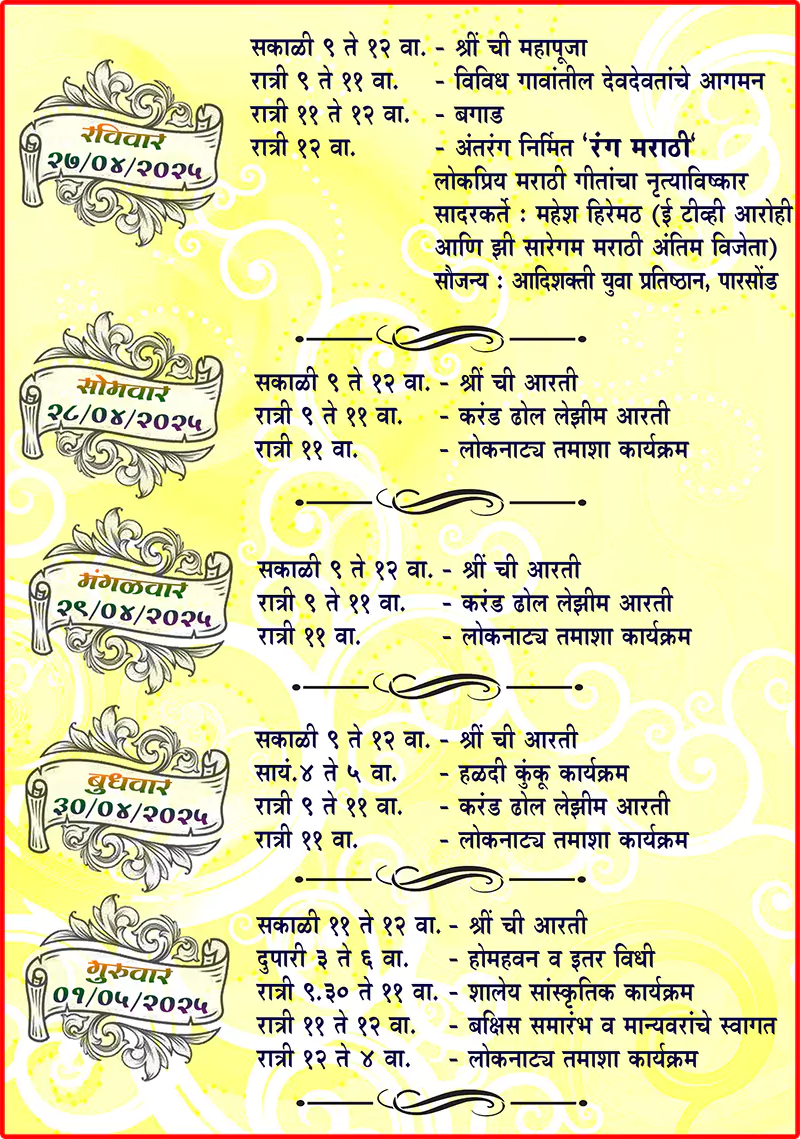 रविवार
२७/०४/२०२५
सकाळी ९ ते १२ वा. - श्रीं ची महापूजा
रात्री ९ ते ११ वा. - विविध गावांतील देवदेवतांचे आगमन
रात्री ११ ते १२ वा. - बगाड
रात्री १२ वा. - अंतरंग निर्मित ‘रंग मराठी‘
लोकप्रिय मराठी गीतांचा नृत्याविष्कार
सादरकर्ते : महेश हिरेमठ (ई टीव्ही आरोही
आणि झी सारेगम मराठी अंतिम विजेता)
सौजन्य : आदिशक्ती युवा प्रतिष्ठान, पारसोंड
सोमवार
२८/०४/२०२५
सकाळी ९ ते १२ वा. - श्रीं ची आरती
रात्री ९ ते ११ वा. - करंड ढोल लेझीम आरती
रात्री ११ वा. - लोकनाट्य तमाशा कार्यक्रम
मंगळवार
२९/०४/२०२५
सकाळी ९ ते १२ वा. - श्रीं ची आरती
रात्री ९ ते ११ वा. - करंड ढोल लेझीम आरती
रात्री ११ वा. - लोकनाट्य तमाशा कार्यक्रम
बुधवार
३०/०४/२०२५
सकाळी ९ ते १२ वा. - श्रीं ची आरती
सायं.४ ते ५ वा. - हळदी कुंकू कार्यक्रम
रात्री ९ ते ११ वा. - करंड ढोल लेझीम आरती
रात्री ११ वा. - लोकनाट्य तमाशा कार्यक्रम
गुरुवार
०१/०५/२०२५
सकाळी ११ ते १२ वा. - श्रीं ची आरती
दुपारी ३ ते ६ वा. - होमहवन व इतर विधी
रात्री ९.३० ते ११ वा. - शालेय सांस्कृतिक कार्यक्रम
रात्री ११ ते १२ वा. - बक्षिस समारंभ व मान्यवरांचे स्वागत
रात्री १२ ते ४ वा. - लोकनाट्य तमाशा कार्यक्रम